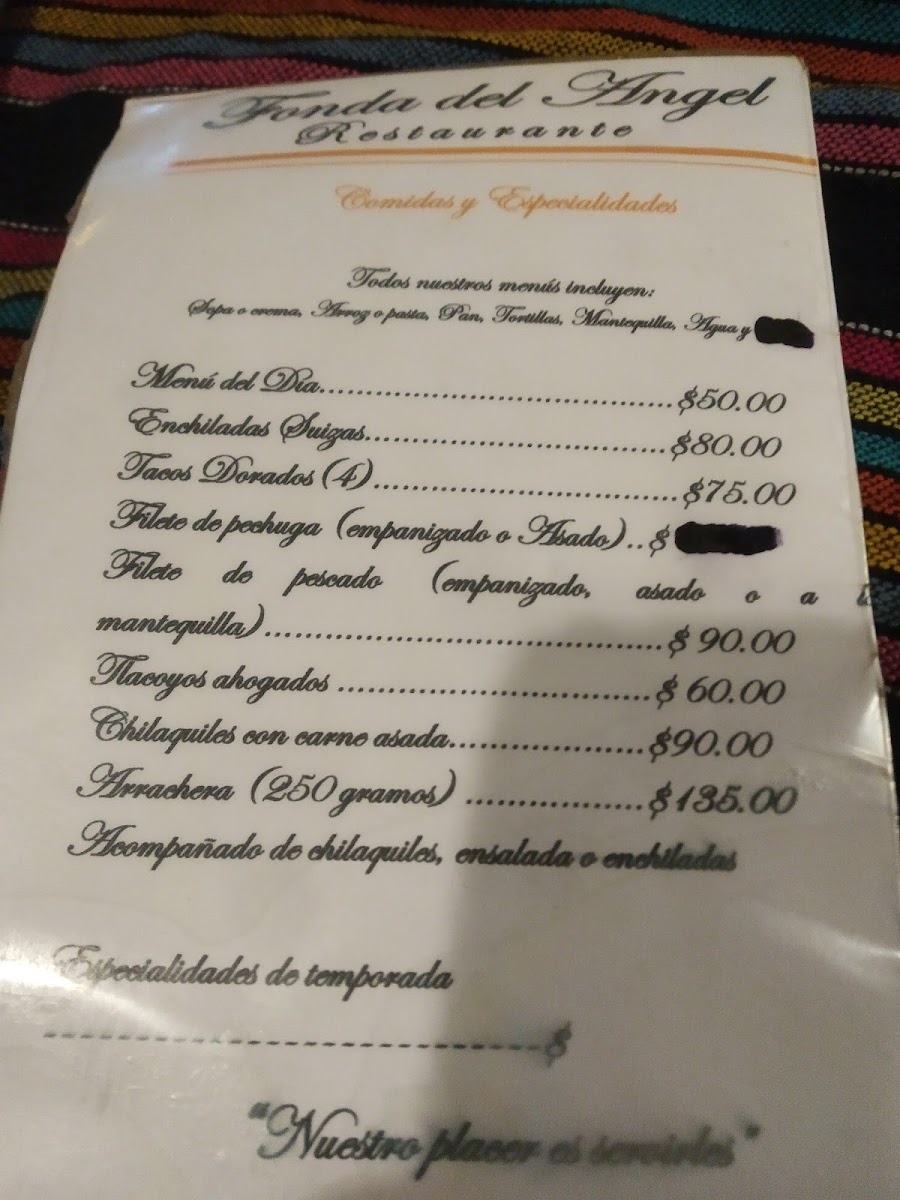 Fonda del Angel
Restaurante
Comidas y Especialidades
Todos nuestros menús incluyen:
Sopa o crema, Arroz o pasta, Pan, Tortillas, Mantequilla, Agua y
Menú del Día......................................$50.00
Enchiladas Suizas................................$80.00
Tacos Dorados (4)................................$75.00
Filete de pechuga (empanizado o Asado)..$
Filete de pescado (empanizado, asado o a
mantequilla)..........................................$ 90.00
Tlacoyos ahogados .................................$ 60.00
Chilaquiles con carne asada....................$90.00
Arrachera (250 gramos) ..................$135.00
Acompañado de chilaquiles, ensalada o enchiladas
Especialidades de temporada
----------------------------$
"Nuestro placer es servirles"